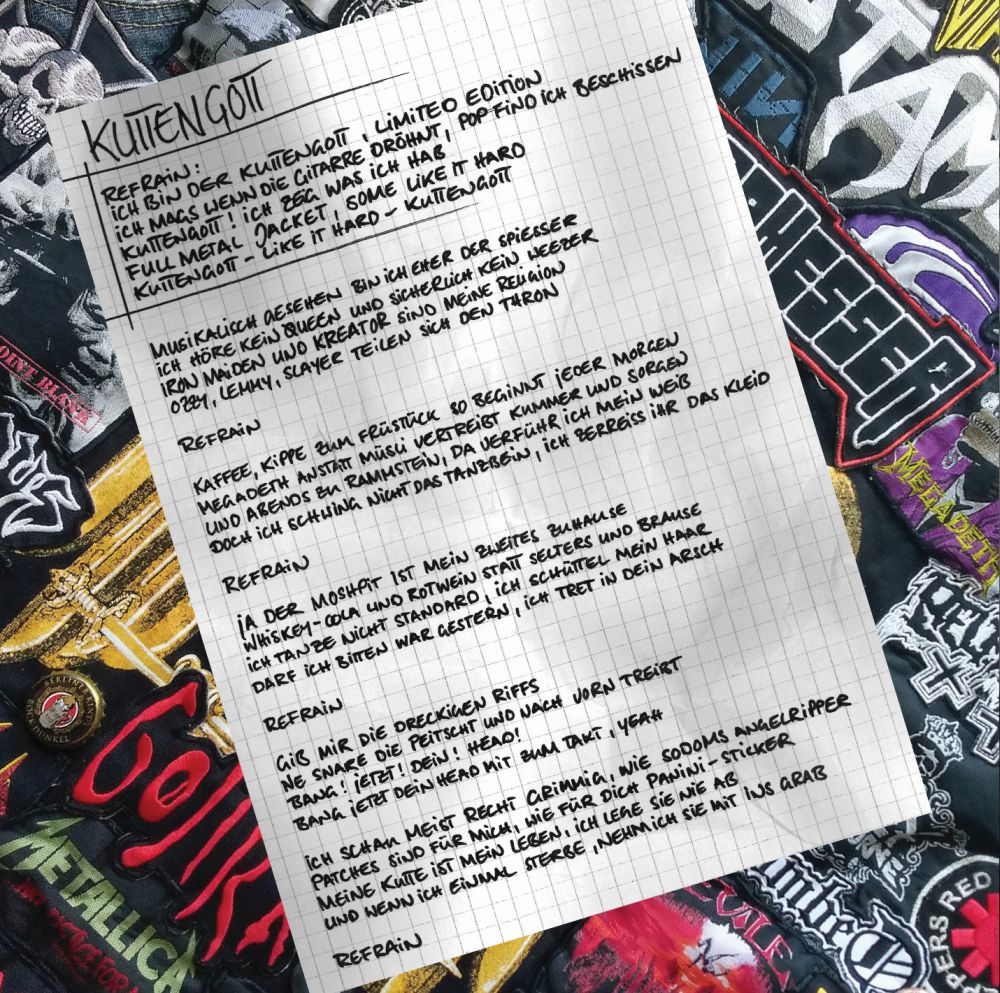 KUTTENGOTT
REFRAIN:
ICH BIN DER KUTTENGOTT, LIMITED EDITION
ICH MAGS WENN DIE GITARRE DRÖHNT, POP FIND ICH BESCHISSEN
KUTTENGOTT! ICH ZEIG WAS ICH HAB
FULL METAL JACKET, SOME LIKE IT HARD
KUTTENGOTT - LIKE IT HARD - KUTTENGOTT
MUSIKALISCH GESEHEN BIN ICH EHER DER SPIESSER
ICH HÖRE KEIN QUEEN UND SICHERLICH KEIN WEEZER
IRON MAIDEN UND KREATOR SIND MEINE RELIGION
OZZY, LEMMY, SLAYER TEILEN SICH DEN THRON
REFRAIN
KAFFEE, KIPPE ZUM FRÜSTÜCK SO BEGINNT JEDER MORGEN
MEGADETH ANSTATT MÜSLI VERTREIBT KUMMER UND SORGEN
UND ABENDS ZU RAMMSTEIN, DA VERFÜHR ICH MEIN WEIB
DOCH ICH SCHWING NICHT DAS TANZBEIN, ICH ZERREISS IHR DAS KLEID
REFRAIN
JA DER MOSHPIT IST MEIN ZWEITES ZUHAUSE
WHISKEY-COLA UND ROTWEIN STATT SELTERS UND BRAUSE
ICH TANZE NICHT STANDARD, ICH SCHÜTTEL MEIN HAAR
DARF ICH BITTEN WAR GESTERN, ICH TRET IN DEIN ARSCH
REFRAIN
GIB MIR DIE DRECKIGEN RIFFS
NE SNARE DIE PEITSCHT UND NACH VORN TREIBT
BANG! JETZT! DEIN! HEAD!
BANG JETZT DEIN HEAD MIT ZUM TAKT, YEAH
ICH SCHAU MEIST RECHT GRIMMIG, WIE SODOMS ANGELRIPPER
PATCHES SIND FÜR MICH, WIE FÜR DICH PANINI-STICKER
MEINE KUTTE IST MEIN LEBEN, ICH LEGE SIE NIE AB
UND WENN ICH EINMAL STERBE, NEHM ICH SIE MIT INS GRAB
REFRAIN
POINT BLANK
MEGADETH
METALLICA
BERLINER
DUNKEL
PPERS RED